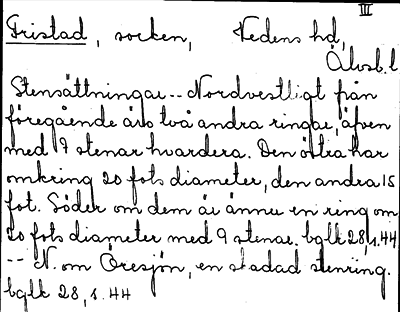 III
Fristad, socken, Vedens hd,
Älvsb. l
Stensättningar -- Nordvestligt från
föregående äro två andra ringar, äfven
med 9 stenar hvardera. Den östra har
omkring 20 fots diameter, den andra 15
fot. Söder om dem är ännu en ring om
20 fots diameter med 9 stenar. bglk 28, s. 44
-- N. om Öresjön, en skadad stenring.
bglk 28, s. 44